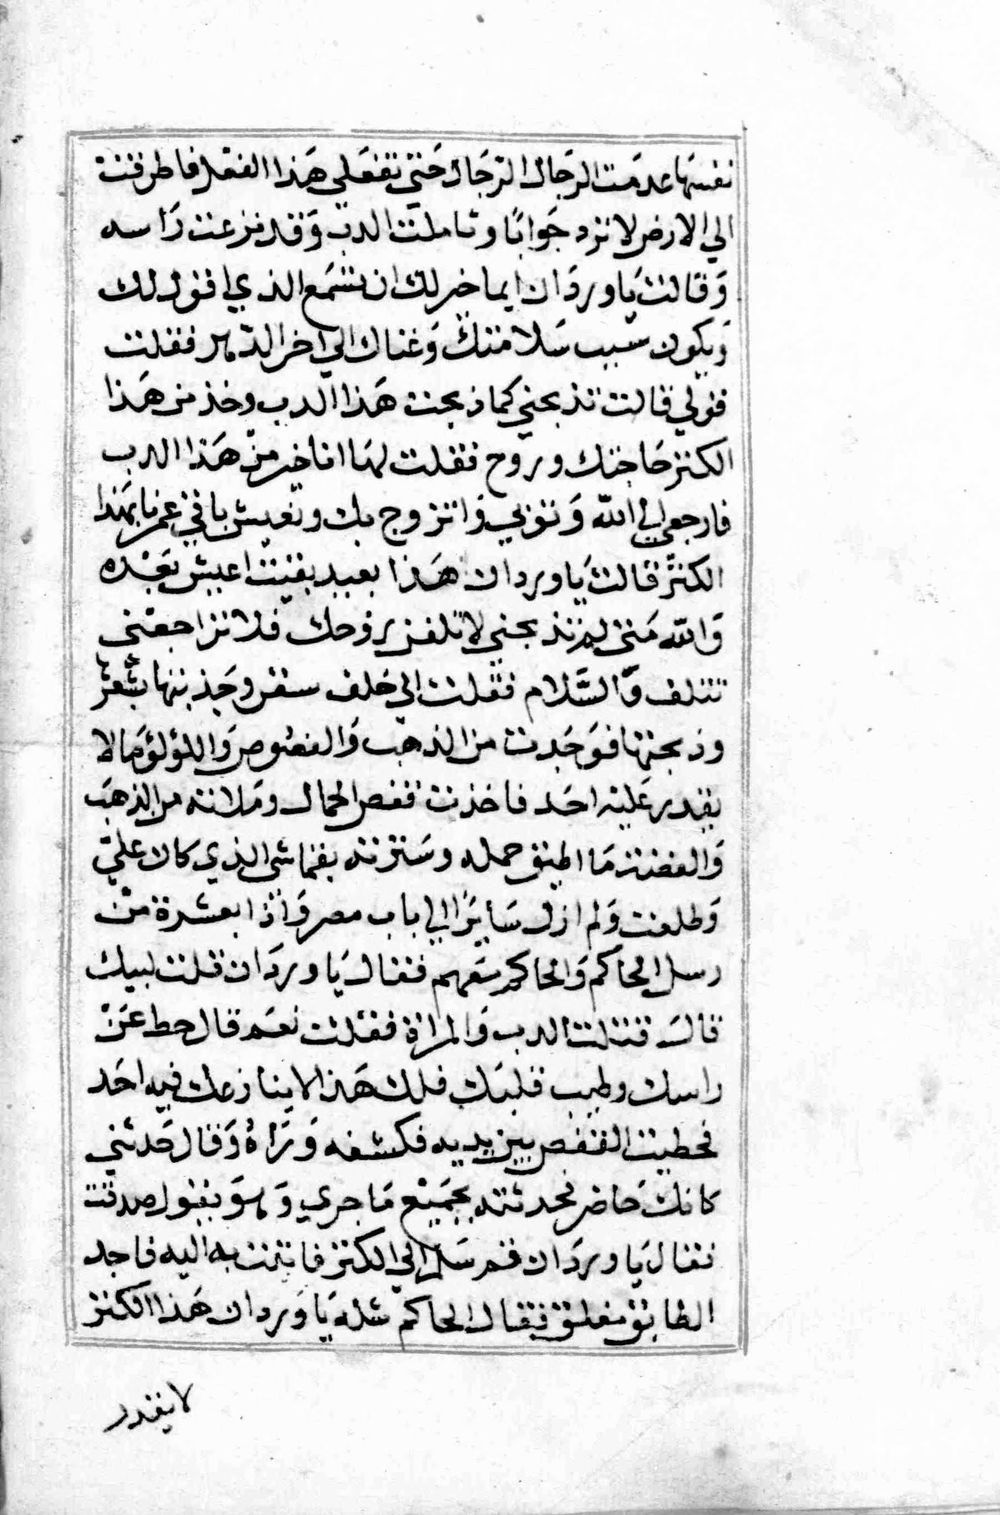 نفسها عدمت الرجال الرجال حتي تفعلي هذا الفعل فاطرقت
الي الارض لا ترد جوابا وتاملت الدب وقد نزعت راسه
وقالت يا وردان ايما خير لك ان تسمع الذي اقول لك
ويكون سبب سلامتك وغناك الي اخر الدهر فقلت
قولي قالت تذبحني كما ذبحت هذا الدب وخذ من هذا
الكنز حاجتك وروح فقلت لها انا خير من هذا الدب
فارجعي الي الله وتوبي واتزوج بك ونعيش باقي عمرنا بهذا
الكنز قالت يا وردان هذا بعيد بقيت اعيش بعده
والله متي لم تذبحني لاتلفن روحك فلا تراجعني
تتلف والسلام فقلت الي خلف سقر وجذبتها بشعرها
وذبحتها فوجدت من الذهب والفصوص واللؤلؤ ما لا
يقدر عليه احد فاخذت قفص الحمال وملاته من الذهب
والفضة ما اطيق حمله وسترته بقماشي الذي كان علي
وطلعت ولم ازل سايرا الي باب مصر واذا بعشرة من
رسل الحاكم والحاكم معهم فقال يا وردان قلت لبيك
قال قتلت الدب والمراة فقلت نعم قال حط عن
راسك وطيب قلبك فلك هذا لا ينازعك فيه احد
فحطيت القفص بين يديه فكشفه وراه وقال حدثني
كانك حاضر فحدثته بجميع ما جري وهو يقول صدقت
فقال يا وردان قم سر الي الكنز فاتيت به اليه فاجد
الطابق مغلق فقال الحاكم شله يا وردان هذا الكنز
لا يقدر